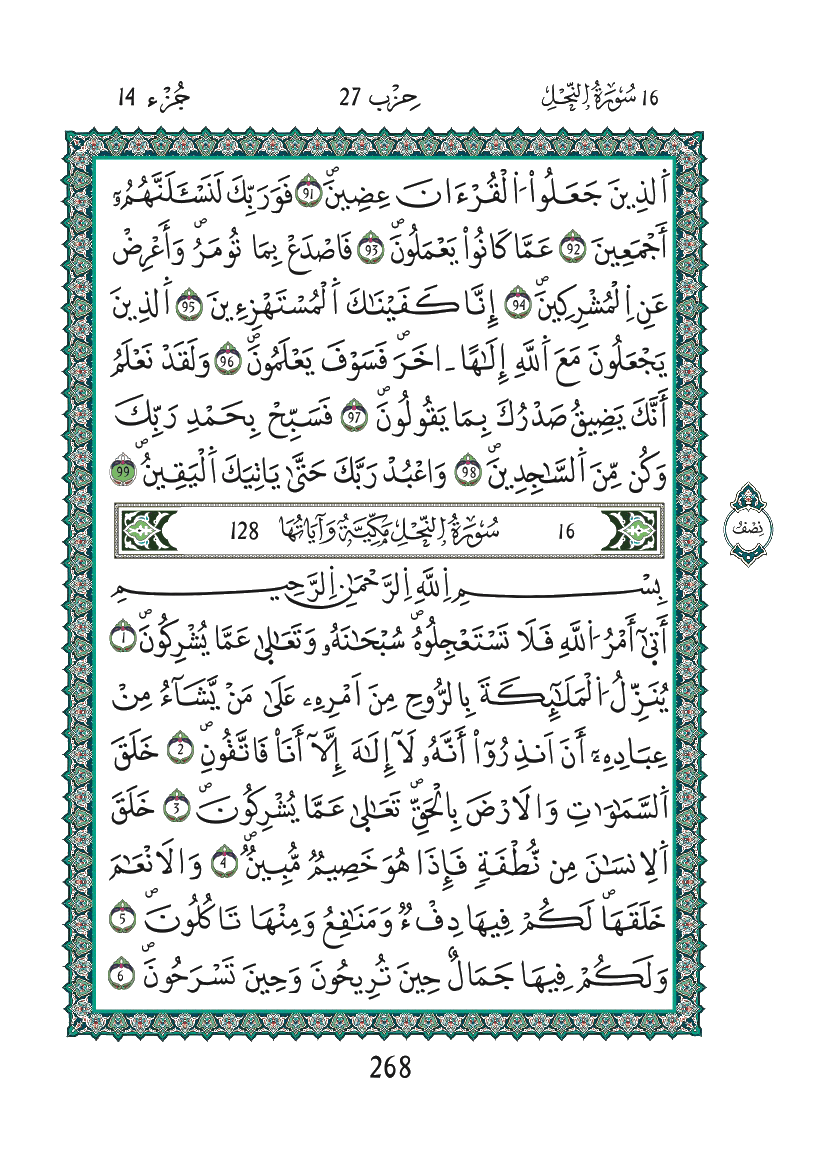 16 سُورَةُ النَّحْلِ حِزْب 27 جُزْء 14
اَ۬لذِينَ جَعَلُواْ اُ۬لْقُرْءَانَ عِضِينَۖ 91 فَوَرَبِّكَ لَنَسْـَٔلَنَّهُمُۥٓ
أَجْمَعِينَ 92 عَمَّا كَانُواْ يَعْمَلُونَۖ 93 فَاصْدَعْ بِمَا تُومَرُۖ وَأَعْرِضْ
عَنِ اِ۬لْمُشْرِكِينَۖ 94 إِنَّا كَفَيْنَٰكَ اَ۬لْمُسْتَهْزِءِينَ 95 اَ۬لذِينَ
يَجْعَلُونَ مَعَ اَ۬للَّهِ إِلَٰهاً ـ اخَرَۖ فَسَوْفَ يَعْلَمُونَۖ 96 وَلَقَدْ نَعْلَمُ
أَنَّكَ يَضِيقُ صَدْرُكَ بِمَا يَقُولُونَۖ 97 فَسَبِّحْ بِحَمْدِ رَبِّكَ
وَكُن مِّنَ اَ۬لسَّٰجِدِينَۖ 98 وَاعْبُدْ رَبَّكَ حَتَّىٰ يَاتِيَكَ اَ۬لْيَقِينُۖ 99
16 سُورَةُ النَّحْلِ مَكِّيَّةٌ وَآيَاتُهَا 128
نِصْفُ
بِسْمِ اِ۬للَّهِ اِ۬لرَّحْمَٰنِ اِ۬لرَّحِيمِ
أَتَىٰٓ أَمْرُ اُ۬للَّهِ فَلَا تَسْتَعْجِلُوهُۖ سُبْحَٰنَهُۥ وَتَعَٰلَىٰ عَمَّا يُشْرِكُونَۖ 1
يُنَزِّلُ اُ۬لْمَلَٰٓئِكَةَ بِالرُّوحِ مِنَ اَمْرِهِۦ عَلَىٰ مَنْ يَّشَآءُ مِنْ
عِبَادِهِۦٓ أَنَ اَنذِرُوٓاْ أَنَّهُۥ لَآ إِلَٰهَ إِلَّآ أَنَا فَاتَّقُونِۖ 2 خَلَقَ
اَ۬لسَّمَٰوَٰتِ وَالَارْضَ بِالْحَقِّۖ تَعَٰلَىٰ عَمَّا يُشْرِكُونَۖ 3 خَلَقَ
اَ۬لِانسَٰنَ مِن نُّطْفَةٍ فَإِذَا هُوَ خَصِيمٌ مُّبِينٌۖ 4 وَالَانْعَٰمَ
خَلَقَهَاۖ لَكُمْ فِيهَا دِفْءٌ وَمَنَٰفِعُ وَمِنْهَا تَاكُلُونَۖ 5
وَلَكُمْ فِيهَا جَمَالٌ حِينَ تُرِيحُونَ وَحِينَ تَسْرَحُونَۖ 6
268